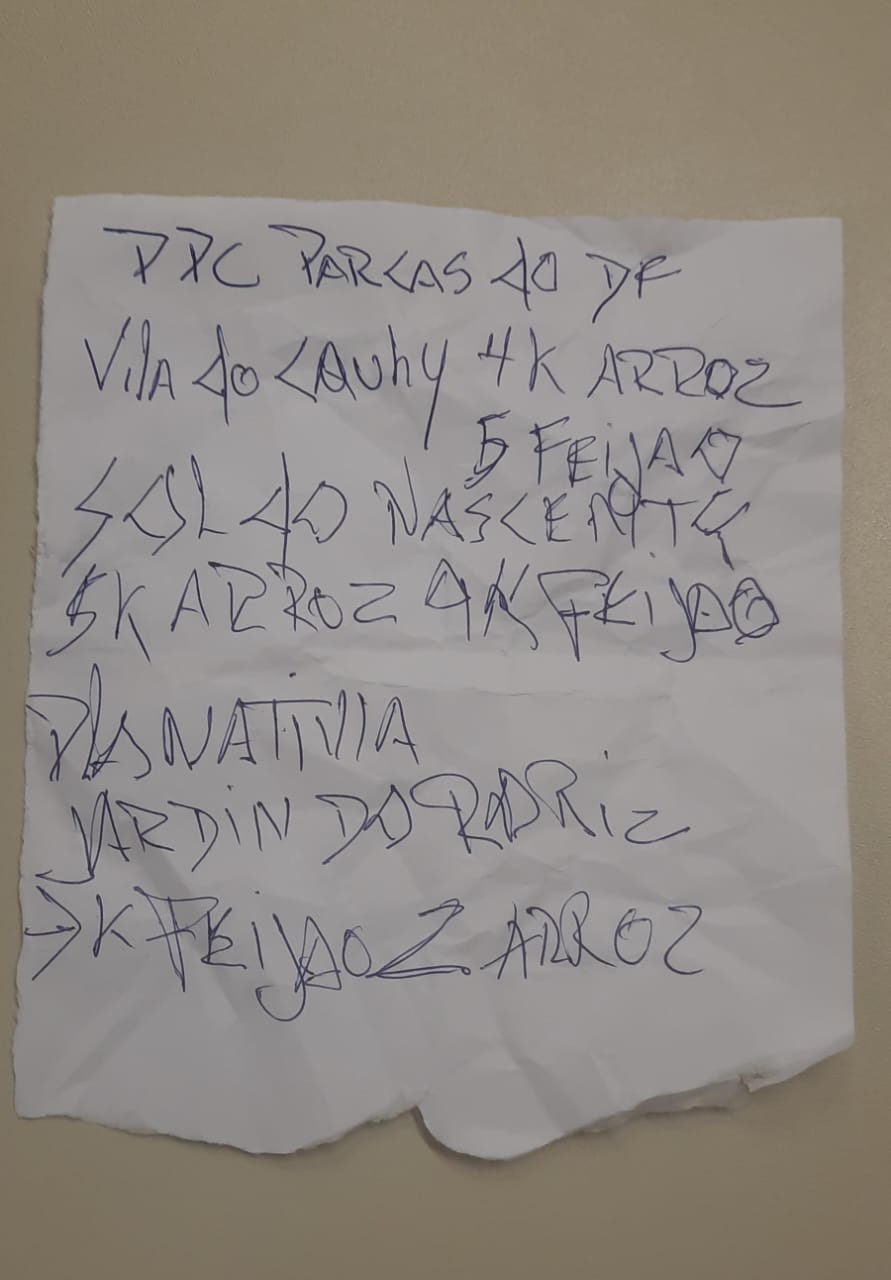 PPC PARCAS do DF
Vila do CAUhy 4K ARROZ
5 FEIJAO
SOL dO NASCENTE
5K ARROZ 4K FEIJAO
PLANATIVIA
JARDIN DO RORIZ
7K FEIJAO 2 ARROZ